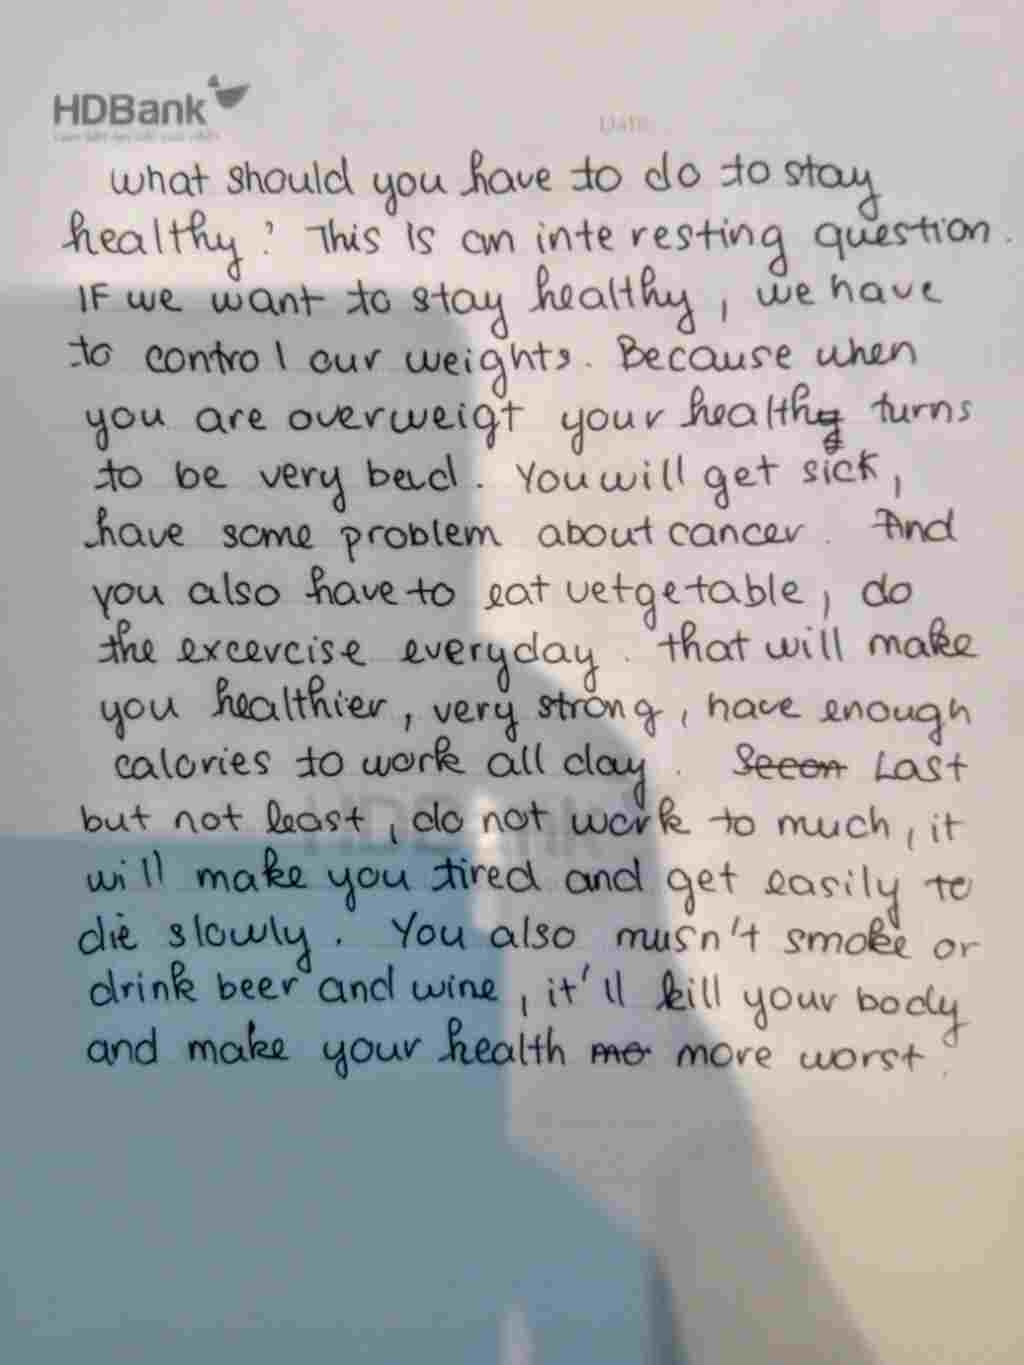 HDBank
DATE
what should you have to do to stay
healthy? This is an interesting question.
IF we want to stay healthy, we have
to control our weights. Because when
you are overweigt your health turns
to be very bad. You will get sick,
have some problem about cancer. And
you also have to eat vetgetable, do
the excercise everyday. that will make
you healthier, very strong, have enough
calories to work all day. Secon Last
but not least, do not work to much, it
will make you tired and get easily to
die slowly. You also musn't smoke or
drink beer and wine, it'll kill your body
and make your health mo more worst.
HDBank